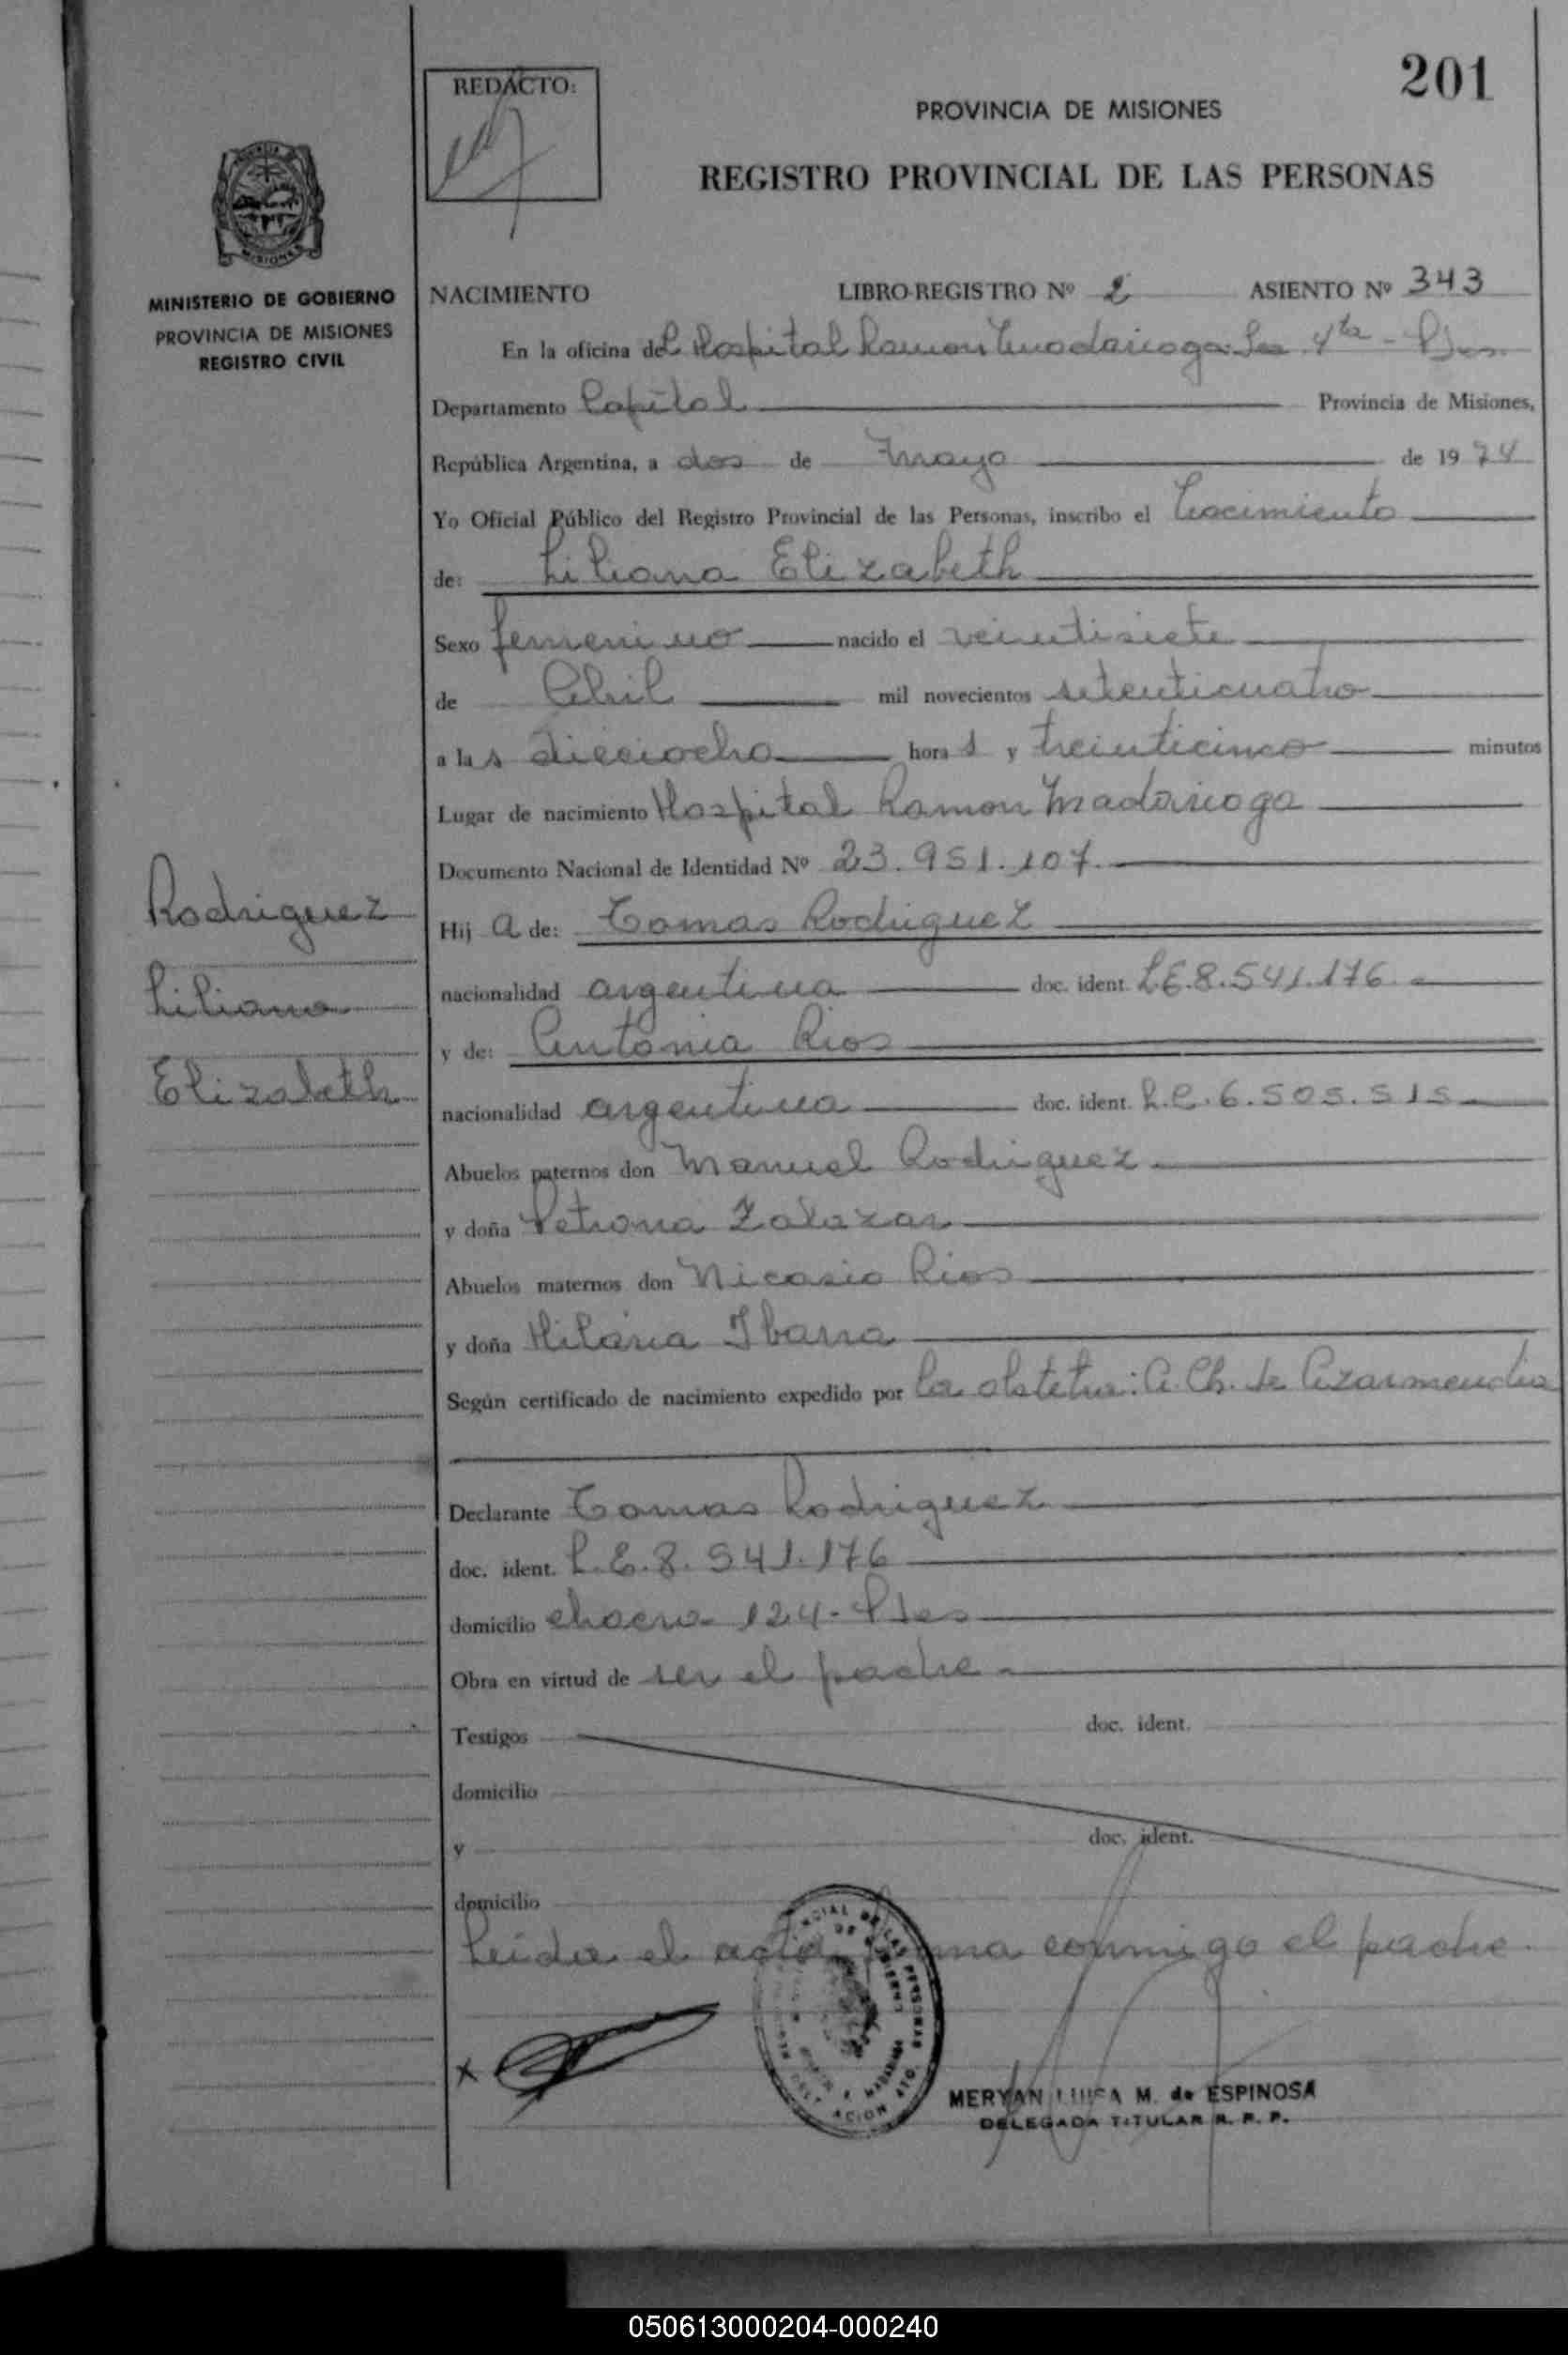 201
REDACTO:
PROVINCIA DE MISIONES
REGISTRO PROVINCIAL DE LAS PERSONAS
MINISTERIO DE GOBIERNO
PROVINCIA DE MISIONES
REGISTRO CIVIL
NACIMIENTO LIBRO-REGISTRO Nº 2 ASIENTO Nº 343
En la oficina del Hospital Ramon Madariaga 4ta - Pdas
Departamento Capital Provincia de Misiones,
República Argentina, a dos de Mayo de 1974
Yo Oficial Público del Registro Provincial de las Personas, inscribo el Nacimiento
de: Liliana Elizabeth
Sexo femenino nacido el veintisiete
de Abril mil novecientos setenticuatro
a las dieciocho horas y treinticinco minutos
Lugar de nacimiento Hospital Ramon Madariaga
Documento Nacional de Identidad Nº 23.951.107.
Rodriguez
Liliana
Elizabeth
Hija de: Tomas Rodriguez
nacionalidad argentina doc. ident. L.E.8.541.176
y de: Antonia Rios
nacionalidad argentina doc. ident. L.C.6.505.515
Abuelos paternos don Manuel Rodriguez
y doña Petrona Zalazar
Abuelos maternos don Nicasio Rios
y doña Hilaria Ibarra
Según certificado de nacimiento expedido por La obstetra: A. Ch. de Azarmendia
Declarante Tomas Rodriguez
doc. ident. L.E.8.541.176
domicilio chacra 124- Pdas
Obra en virtud de ser el padre
Testigos doc. ident.
domicilio
y doc. ident.
domicilio
Leida el acta firma conmigo el padre.
MERYAN LUISA M. de ESPINOSA
DELEGADA TITULAR R. P. P.
050613000204-000240